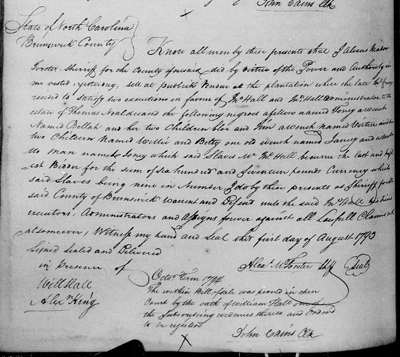 John Cains Clk
State of North Carolina
Brunswick County
Know all men by these presents that I Alexander
Forster Sheriff for the County foresaid did by virtue of the Power and Authority in
me vested yesterday, sell at publick Vendue at the plantation where the late
resided to satisfy two executions in favour of Jno Hall and Jno Hall administrator to the
estate of Thomas Neal deceased the following negroes as follows named Hony a wench
Named Bellah and her two Children Alex and Ann a wench named and her
two Children Named Willie and Betty one old wench named Janny and
the man named which said Slaves Wm Hall became the last and high
est Bidder for the sum of Six hundred and Seventeen pounds Currency which
said Slaves being nine in Number I do by these presents as Sheriff for the
said County of Brunswick warrant and Defend unto the said Hall his heirs
executors, Administrators and Assigns forever against all Lawfull Claims
whatsomever, Witness my hand and Seal this first day of August 1793
Signed Sealed and Delivered
in Presence of
Will Hall
Alexr King
Alexr McForster Shff (Seal)
Octo Term 1794
The within Bill of Sale was proved in open
Court by the oath of William Hall one of
the Subscribing witnesses thereto and Ordered
to be registerd
John Cains Clk